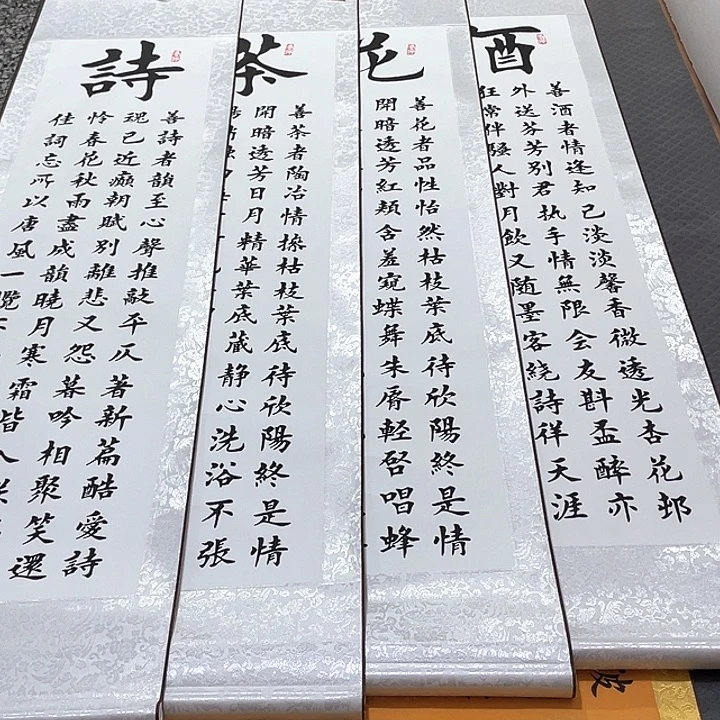 酒
善酒者情逢知己淡淡馨香微透光杏花邨
外送芬芳别君执手情無限会友斟盃醉亦
狂常伴骚人對月飲又随墨客绕詩徉天涯
花
善花者品性怡然枯枝葉底待欣陽終是情
開暗透芳紅颊含羞窥蝶舞朱唇輕启唱蜂
茶
善茶者陶冶情操枯枝葉底待欣陽終是情
開暗透芳日月精華葉底蔵静心洗浴不張
詩
善詩者韻至心聲推敲平仄著新篇酷愛詩
魂已近癫朝赋别離悲又怨暮吟相聚笑還
怜春花秋雨盡成韻曉月寒霜皆
佳詞忘所以唐風一覽